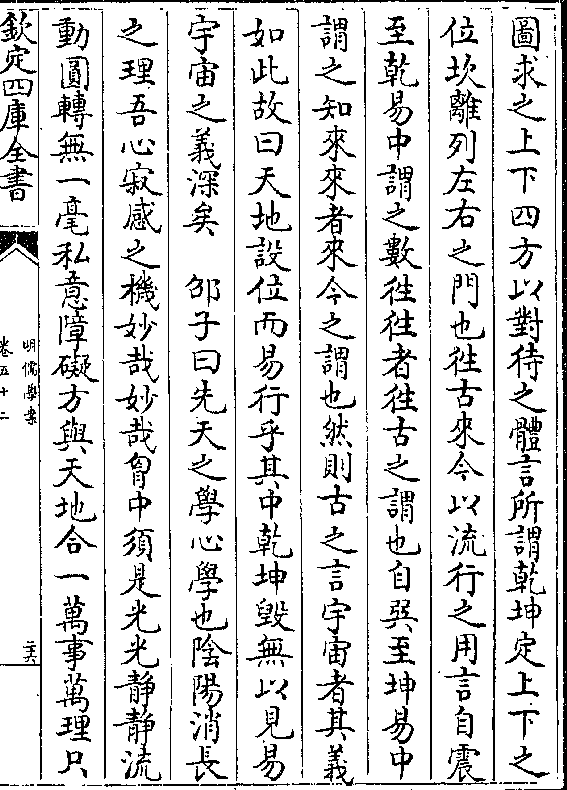 圖求之上下四方以對待之體言所謂乾坤定上下之
位坎離列左右之門也徃古來今以流行之用言自震
至乾易中謂之數徃徃者徃古之謂也自巽至坤易中
謂之知來來者來今之謂也然則古之言宇宙者其義
如此故曰天地設位而易行乎其中乾坤毀無以見易
宇宙之義深矣　邵子曰先天之學心學也陰陽消長
之理吾心寂感之機妙哉妙哉胷中須是光光靜靜流
動圓轉無一毫私意障礙方與天地合一萬事萬理只
欽定四庫全書
明儒學案
卷五十二
二六